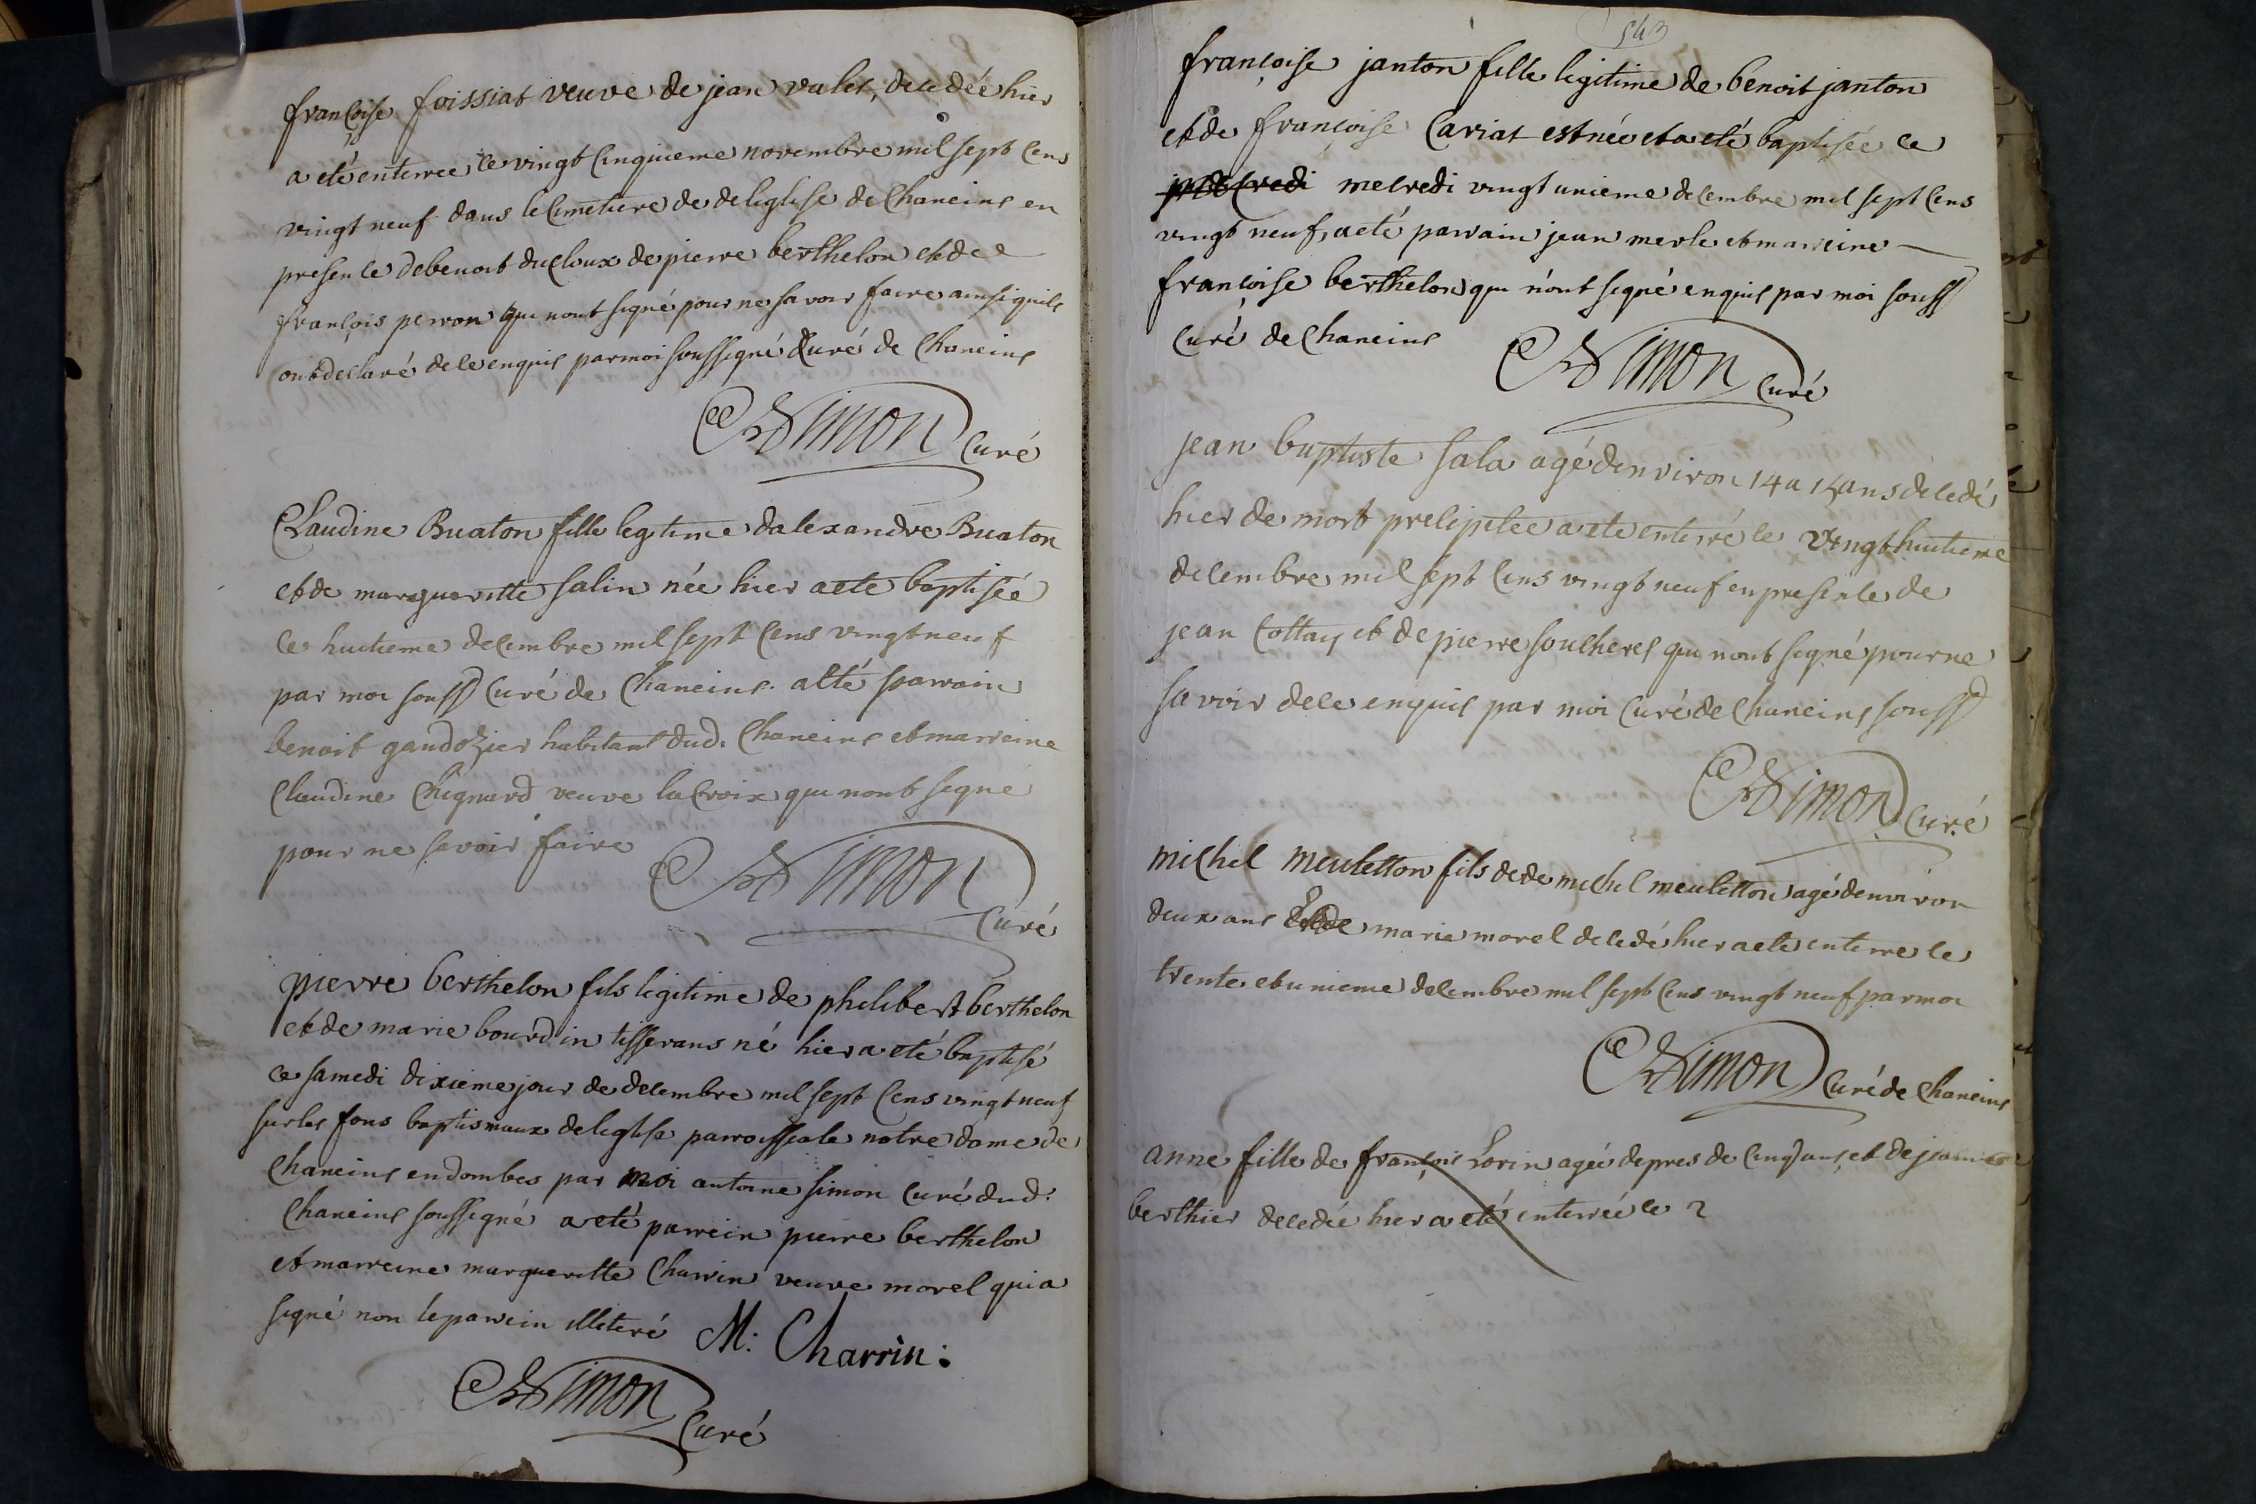 françoise foissiat veuve de jean valet, decedée hier
a eté enterree le vingt cinquieme novembre mil sept cens
vingt neuf dans le cimetiere de de leglise de Chaneins en
presence de benoit ducloux de pierre berthelon et de
françois perron qui nont signé pour ne savoir faire ainsi quils
ont declaré de ce enquis par moi soussigné Curé de Chaneins
Simon Curé
Claudine Buaton fille legtime dalexandre Buaton
et de marguaritte salin née hier a eté baptiseé
le huitieme decembre mil sept cens vingt neuf
par moi souss Curé de Chaneins. a eté parrain
benoit gaudozier habitant dud. Chaneins et marreine
Claudine Chignard veuve lacroix qui nont signé
pour ne savoir faire
Simon
Curé
pierre berthelon fils legitime de philibert berthelon
et de marie bourdin tisserans né hier a eté baptisé
ce samedi dixieme jour de decembre mil sept cens vingt neuf
sur les fons baptismaux de leglise parroissiale notre dame de
Chaneins en dombes par moi antoine simon Curé dud.
Chaneins soussigné a eté parrein pierre berthelon
et marreine margueritte Charrin veuve morel qui a
signé non le parrein illiteré M: Charrin:
Simon
Curé
543
françoise janton fille legitime de benoit janton
et de françoise Cariat est née et a eté baptisée ce
mecredi vingt unieme decembre mil sept cens
vingt neuf, a eté parrain jean merle et marreine
françoise berthelon qui n'ont signé enquis par moi souss
Curé de Chaneins Simon Curé
jean baptiste sala agé denviron 14 a 15 ans decedé
hier de mort precipitee a eté enterré le vingt huitieme
decembre mil sept cens vingt neuf en presence de
jean Cottay et de pierre soucheres qui nont signé pour ne
savoir de ce enquis par moi Curé de Chaneins souss
Simon Curé
michel meuletton fils de de michel meuletton agé denviron
deux ans et de marie morel decedé hier a eté enterre le
trente et unieme decembre mil sept cens vingt neuf par moi
Simon Curé de Chaneins
anne fille de françois Lorin agée de pres de cinq ans, et de jeanne
berthier decedée hier a eté enterrée le 2